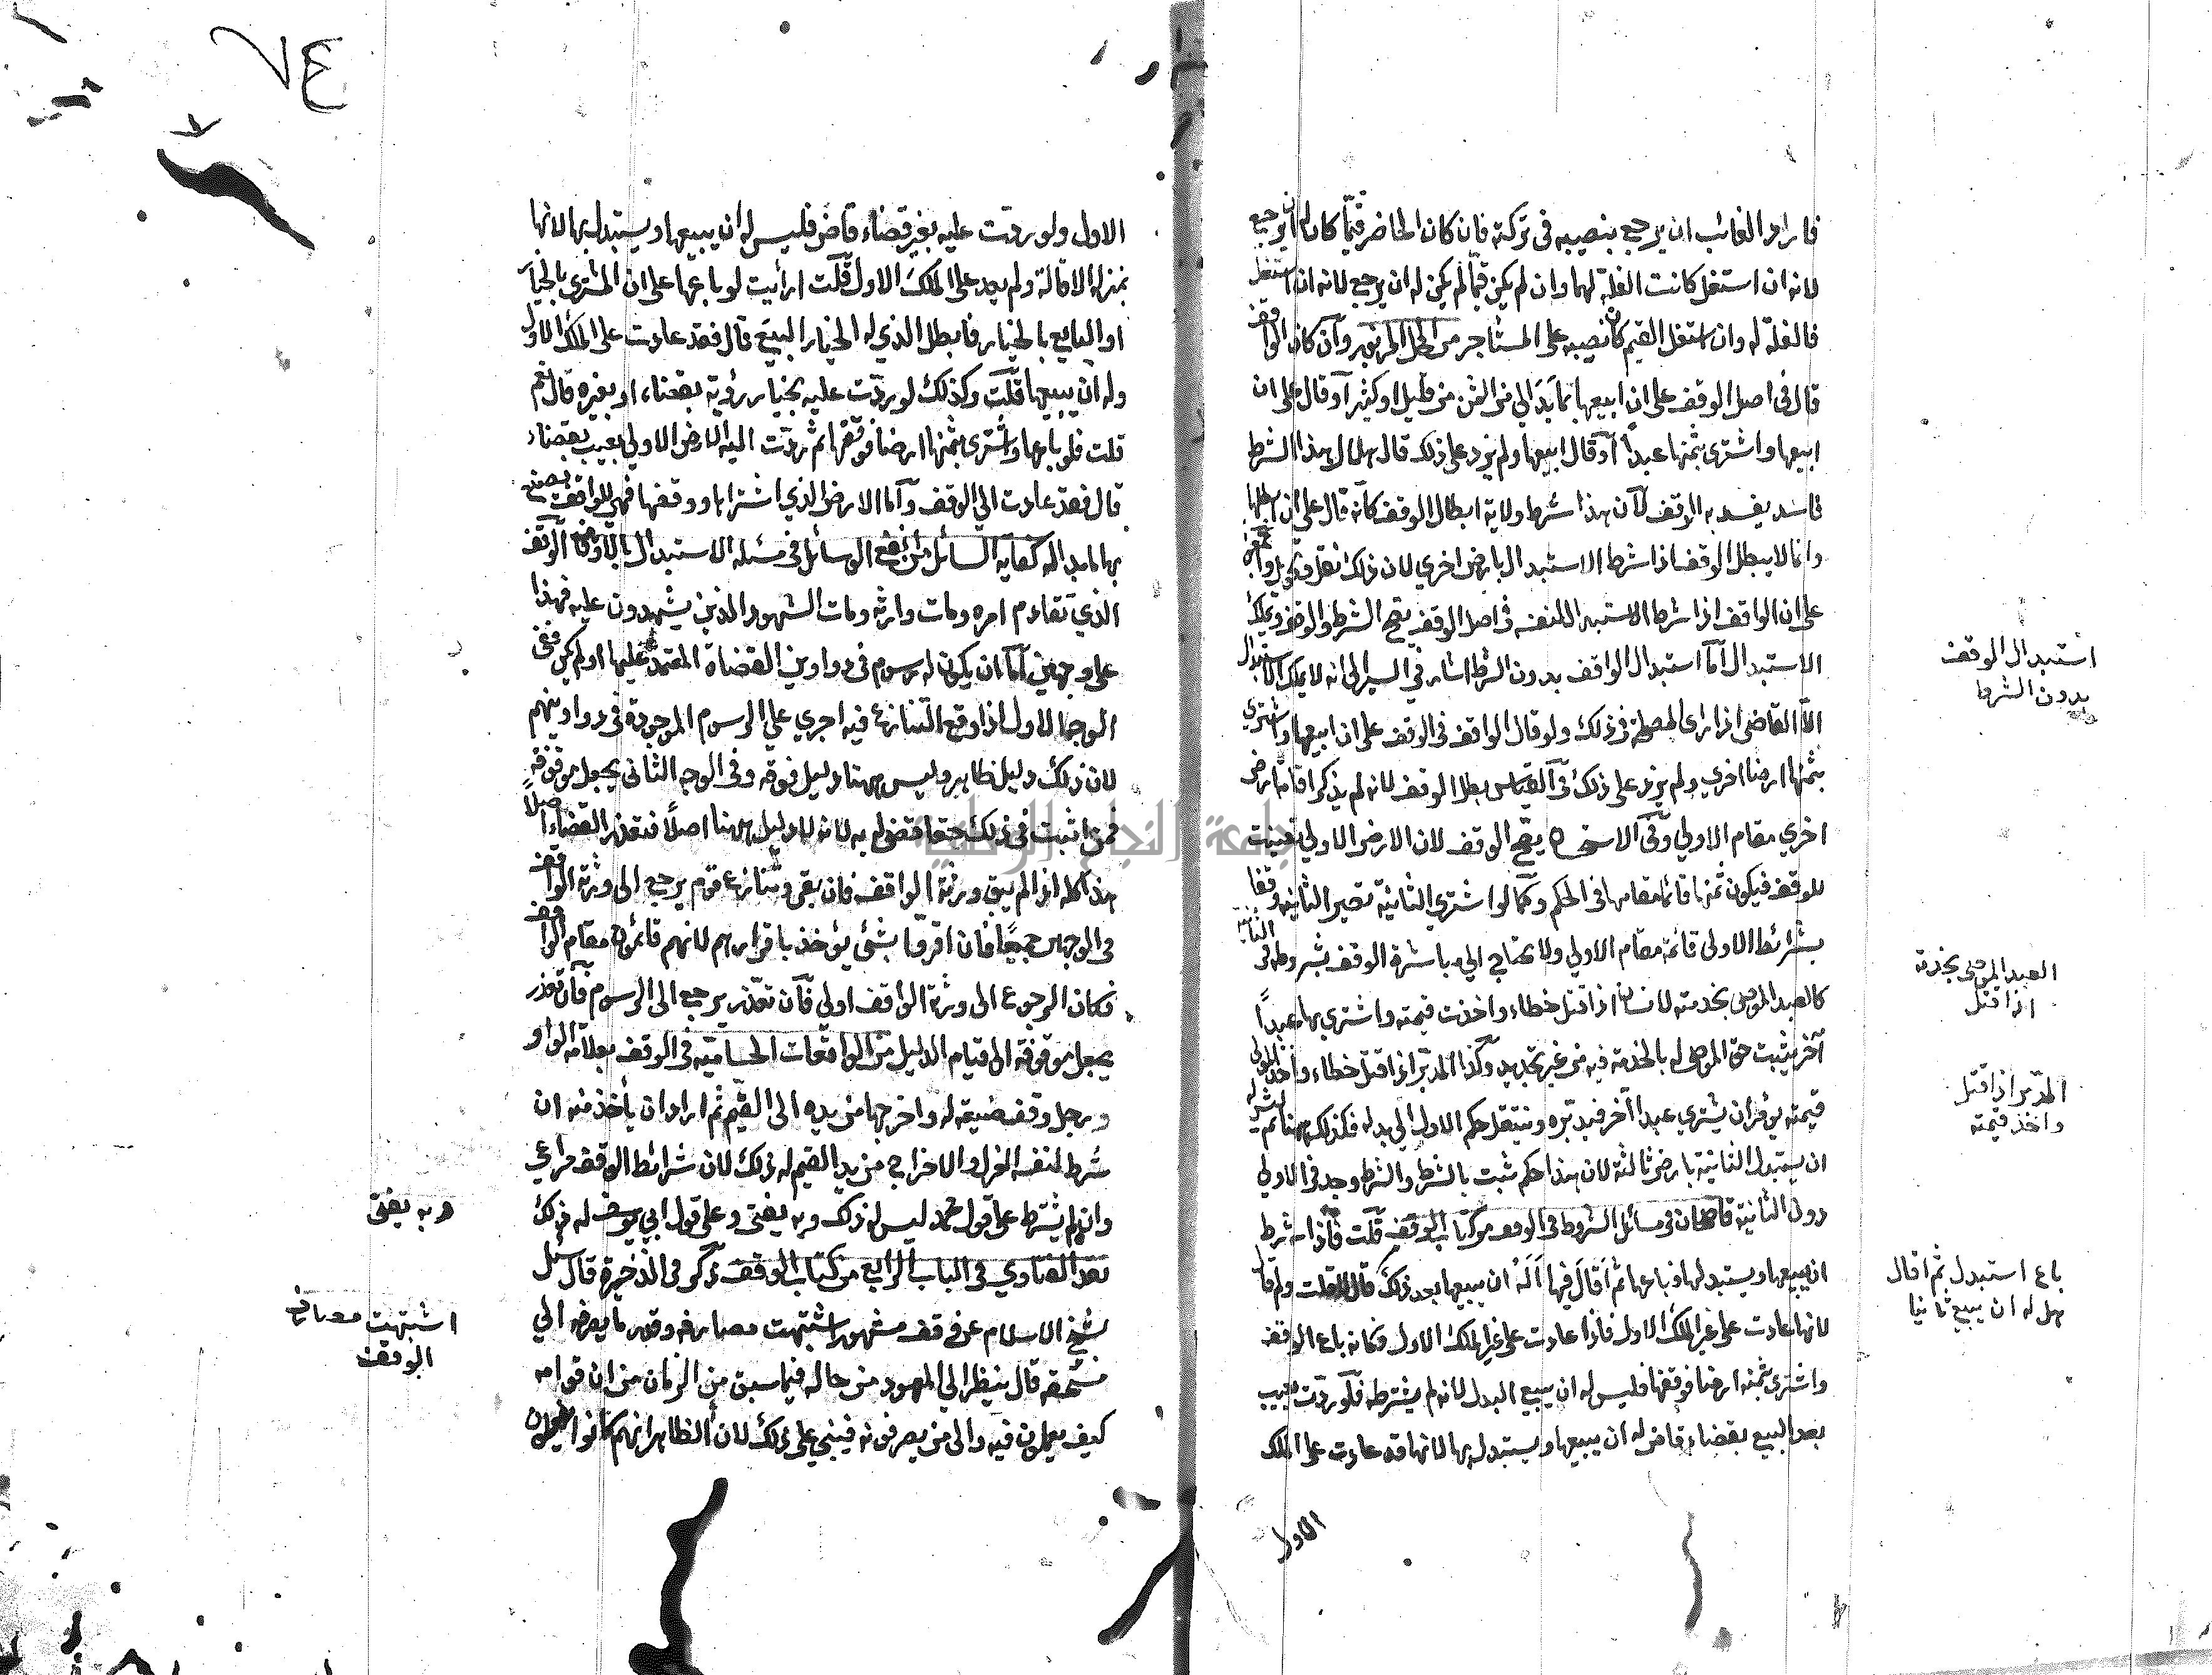 فاراد الغائب ان يرجع بنصيبه فى تركته فان كان الحاضر قيّما كان له ان يرجع
لانه ان استغل كانت الغلة لهما وان لم يكن قيّما لم يكن له ان يرجع لانه ان استغل
فالغلة له وان استغل القيم كان نصيبه على المستاجر من المحل المزبور وان كان الواقف
قال فى اصل الوقف على ان ابيعها بما بدا لي من الثمن من قليل او كثير او قال على ان
ابيعها واشترى بثمنها عبدا او قال ابيعها ولم يزد على ذلك قال هلال هذا الشرط
فاسد يفسد به الوقف لان هذا شرط ولاية ابطال الوقف كانه قال على ان ابطلها
وانما لا يبطل الوقف اذا شرط الاستبدال بارض اخري لان ذلك نقل وتحويل واجمعوا
على ان الواقف اذا شرط الاستبدال لنفسه فى اصل الوقف يصح الشرط والوقف ويملك
الاستبدال اما استبدال الواقف بدون الشرط اشار في السير الى انه لا يملك الاستبدال
الا القاضى اذا راى المصلحة فى ذلك ولو قال الواقف فى الوقف على ان ابيعها واشتري
بثمنها ارضا اخري ولم يزد على ذلك فى القياس يبطل الوقف لانه لم يذكر اقامة ارض
اخري مقام الاولي وفى الاستحسان يصح الوقف لان الارض الاولي تعينت
للوقف فيكون ثمنها قائما مقامها فى الحكم وكما لو اشتري الثانية تصير الثانية وقفا
بشرائط الاولى قائمة مقام الاولي ولا يحتاج الى مباشرة الوقف بشروطه فى الثانية
كالعبد الموصى بخدمته لانسان اذا قتل خطاء واخذت قيمته واشتري بها عبداً
آخر يثبت حق الموصى له بالخدمة فيه من غير تجديد وكذا المدبر اذا قتل خطاء واخذ المولى
قيمته يؤمر ان يشتري عبدا آخر فيدبره وينتقل حكم الاول الي بدله فكذلك ههنا ثم ليس له
ان يستبدل الثانية بارض ثالثة لان هذا حكم ثبت بالشرط والشرط وجد فى الاولي
دون الثانية قاضيخان فى مسائل الشروط فى الوقف من كتاب الوقف قلت فاذا شرط
ان يبيعها ويستبدل بها فباعها ثم اقال فيها أَلَهُ ان يبيعها بعد ذلك قال لا قلت ولم قال
لانها عادت على غير الملك الاول فاذا عادت على غير الملك الاول فكانه باع الوقف
واشترى بثمنه ارضا فوقفها فليس له ان يبيع البدل لانه لم يشترطه فلو ردت بعيب
بعد البيع بقضاء قاض له ان يبيعها ويستبدل بها لانها قد عادت على الملك
الاول
استبدال الوقف
بدون الشرط
العبد الموصى بخدمته
اذا قتل
المدبر اذا قتل
واخذ قيمته
باع استبدل ثم اقال
هل له ان يبيع ثانيا
الاول ولو ردت عليه بغير قضاء قاض فليس له ان يبيعها ويستبدل بها لانها
بمنزلة الاقالة ولم يعد على الملك الاول قلت ارأيت لو باعها على ان المشترى بالخيار
او البايع بالخيار فابطل الذي له الخيار البيع قال فقد عادت على الملك الاول
وله ان يبيعها قلت وكذلك لو ردت عليه بخيار رؤية بقضاء او بغيره قال نعم
قلت فلو باعها واشترى بثمنها ارضا فوقفها ثم ردت اليه الارض الاولي بعيب بقضاء
قال فقد عادت الي الوقف واما الارض الذي اشتراها ووقفها فهى للواقف يصنع
بها ما بدا له كفاية السائل من انفع الوسائل فى مسئلة الاستبدال بالاوقاف الوقف
الذي تقادم امره ومات وارثه ومات الشهود الذين يشهدون عليه فهذا
على وجهين اما ان يكون له رسوم فى دواوين القضاة المعتمد عليها او لم يكن ففى
الوجه الاول اذا وقع التنازع فيه اجري على الرسوم الموجودة فى دواوينهم
لان ذلك دليل ظاهر وليس ههنا دليل فوقه وفى الوجه الثانى يجعل موقوفة
فمن اثبت فى ذلك حقا قضى له به لانه لا دليل ههنا اصلاً فتعذر القضاء اصلاً
هذا كله اذا لم يبق ورثة الواقف فان بقى وتنازع قوم يرجع الى ورثة الواقف
فى الوجهين جميعا فان اقروا بشئ يؤخذ باقرارهم لانهم قائمون مقام الواقف
فكان الرجوع الى ورثة الواقف اولي فان تعذر يرجع الى الرسوم فان تعذر
يجعل موقوفة الى قيام الدليل من الواقعات الحسامية فى الوقف بعلامة الواو
ورجل وقف ضيعة له واخرجها من يده الى القيّم ثم اراد ان يأخذ منه ان
شرط لنفسه العزل والاخراج من يد القيم له ذلك لان شرائط الوقف تراعي
وان لم يشترط على قول محمد ليس له ذلك وبه يفتى وعلى قول ابي يوسف له ذلك
نقد الفتاوي فى الباب الرابع من كتاب الوقف ذكر فى الذخيرة قال سئل
شيخ الاسلام عن وقف مشهور اشتبهت مصارفه وقدر ما يصرف الي
مستحقه قال ينظر الي المعهود من حاله فيما سبق من الزمان من ان قوامه
كيف يعملون فيه والى من يصرفونه فيبنى على ذلك لان الظاهر انهم كانوا يعملون
وبه يفتى
اشتبهت مصارف
الوقف
جامعة النجاح الوطنية